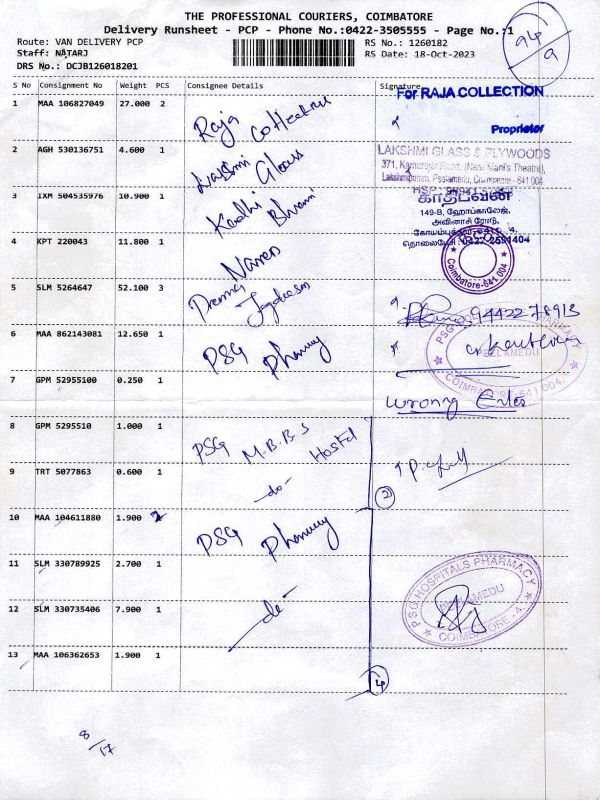 THE PROFESSIONAL COURIERS, COIMBATORE
Delivery Runsheet - PCP - Phone No.:0422-3505555 - Page No.:1
Route: VAN DELIVERY PCP
RS No.: 1260182
Staff: NATARJ
RS Date: 18-Oct-2023
DRS No.: DCJB126018201
94
9
S No Consignment No Weight PCS Consignee Details Signature
1 MAA 106827049 27.000 2 Raja Collection
For RAJA COLLECTION
Proprietor
2 AGH 530136751 4.600 1 Lakshmi Glass
LAKSHMI GLASS & PLYWOODS
371, Kamarajar Road, (Near Mani's Theatre),
Lakshmipuram, Peelamedu, Coimbatore - 641 004
3 IXM 504535976 10.900 1 Kadhi
காதிடவன்
149-B, ஹோப்காலேஜ்,
அவினாசி ரோடு,
4 KPT 220043 11.800 1 Naveen
Coimbatore-641 004
5 SLM 5264647 52.100 3 Prema
94422 78913
6 MAA 862143081 12.650 1 PSG Pharmacy
PEELAMEDU
COIMBATORE-641 004.
7 GPM 52955100 0.250 1
Wrong Entes
8 GPM 5295510 1.000 1 PSG M.B.B.S Hostel
9 TRT 5077863 0.600 1 -do-
2
10 MAA 104611880 1.900 2 PSG Pharmacy
11 SLM 330789925 2.700 1
PSG HOSPITALS PHARMACY
PEELAMEDU
COIMBATORE - 4.
12 SLM 330735406 7.900 1 -do-
13 MAA 106362653 1.900 1
4
8/17